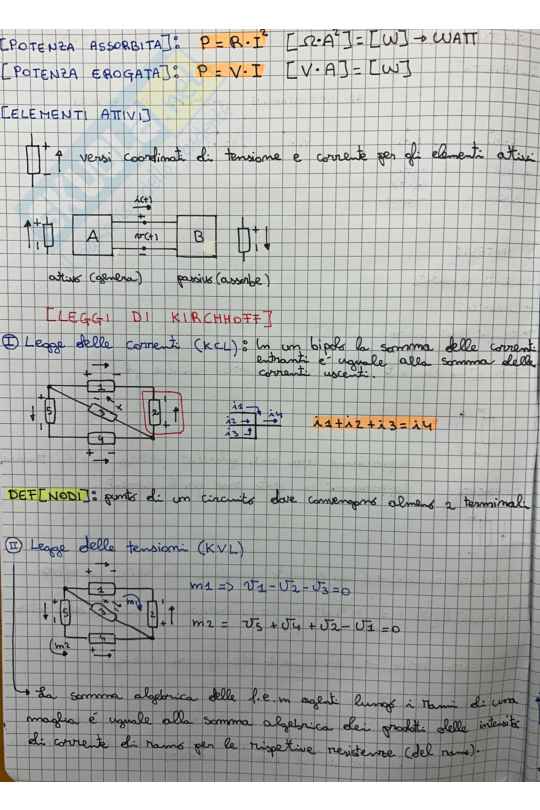 [POTENZA ASSORBITA]: P = R·I² [Ω·A²] = [W] → WATT
[POTENZA EROGATA]: P = V·I [V·A] = [W]
[ELEMENTI ATTIVI]
versi coordinati di tensione e corrente per gli elementi attivi
i(t)
A v(t) B
attivo (genera) passivo (assorbe)
[LEGGI DI KIRCHHOFF]
I Legge delle correnti (KCL): In un bipolo la somma delle correnti
entranti é uguale alla somma delle
correnti uscenti.
1
5 3 2
4
i1
i2 i4
i3
i1+i2+i3=i4
DEF[NODI]: punto di un circuito dove convengono almeno 2 terminali
II Legge delle tensioni (KVL)
1
5 3 m1 2
4
m2
m1 => V1-V2-V3=0
m2 = V5+V4+V2-V1=0
La somma algebrica delle f.e.m agenti lungo i rami di una
maglia é uguale alla somma algebrica dei prodotti delle intensità
di corrente di ramo per le rispettive resistenze (del ramo).